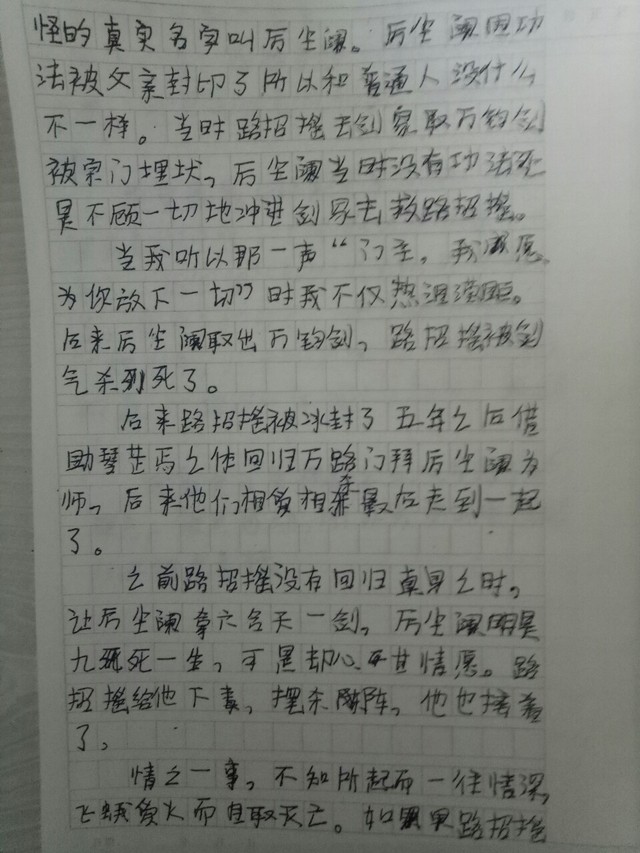 怪的真实名字叫厉尘澜。厉尘澜因功
法被父亲封印了所以和普通人没什么
不一样。当时路招摇去剑冢取万钧剑
被宗门埋伏,厉尘澜当时没有功法还
是不顾一切地冲进剑冢去救路招摇。
当我听以那一声“门主,我愿
为你放下一切”时我不仅热泪满眶。
后来厉尘澜取出万钧剑,路招摇被剑
气杀死了。
后来路招摇被冰封了五年之后借
助琴芷嫣之体回归万路门拜厉尘澜为
师,后来他们相爱相杀最后走到一起
了。
之前路招摇没有回归真身之时,
让厉尘澜拿六合天一剑,厉尘澜明是
九死一生,可是却心甘情愿。路
招摇给他下毒,摆杀阵,他也接着
了,
情之一事,不知所起而一往情深,
飞蛾负火而自取灭亡。如果路招摇